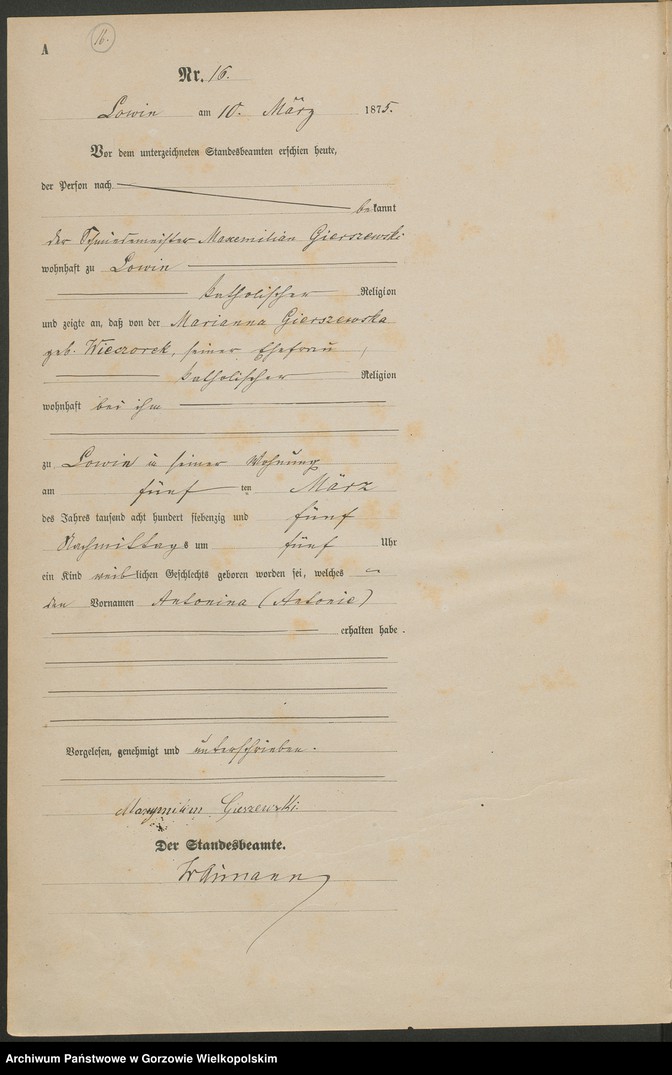 A
16.
Nr. 16.
Lowin am 10. März 1875.
Vor dem unterzeichneten Standesbeamten erschien heute,
der Person nach
bekannt
der Schmiedemeister Maxemilian Gierszewski
wohnhaft zu Lowin
katholischer Religion
und zeigte an, daß von der Marianna Gierszewska
geb. Wieczorek, seiner Ehefrau,
katholischer Religion
wohnhaft bei ihm
zu Lowin in seiner Wohnung
am fünf ten März
des Jahres tausend acht hundert siebenzig und fünf
Nachmittags um fünf Uhr
ein Kind weiblichen Geschlechts geboren worden sei, welches
den Vornamen Antonina (Antonie)
erhalten habe.
Vorgelesen, genehmigt und unterschrieben.
Der Standesbeamte.
Archiwum Państwowe w Gorzowie Wielkopolskim